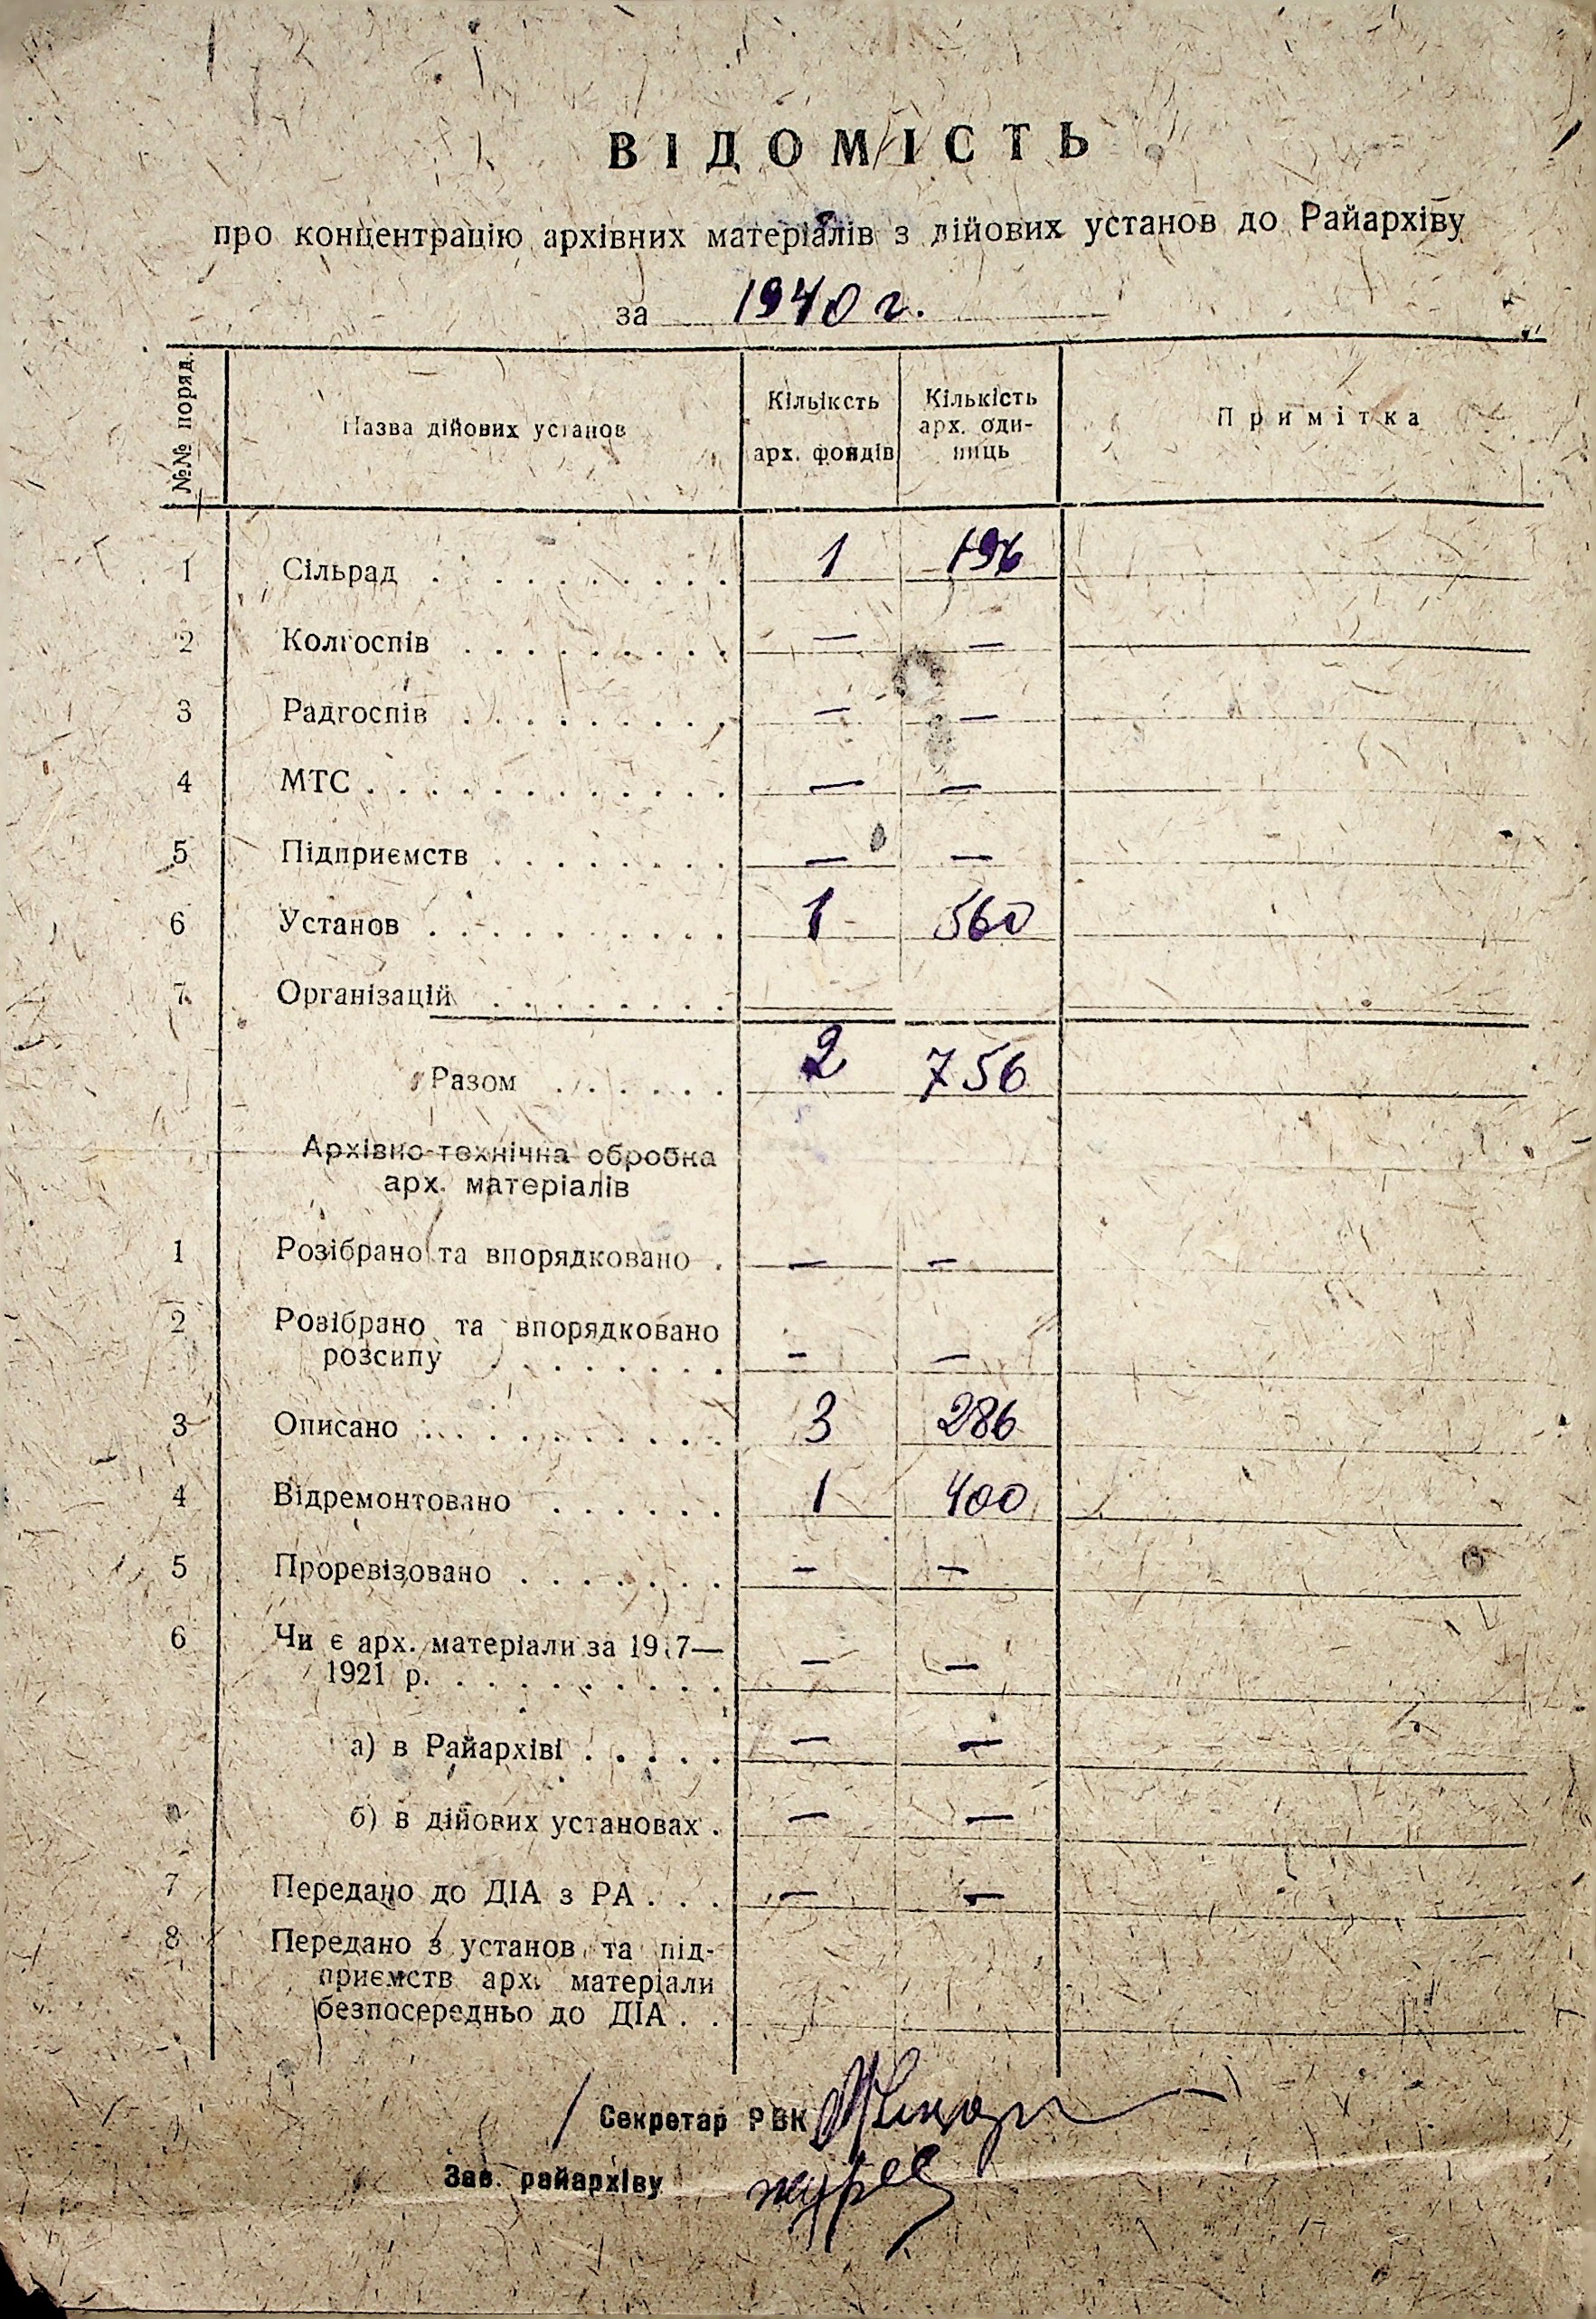 ВІДОМІСТЬ
про концентрацію архівних матеріалів з дійових установ до Райархіву
за 1940 г.
№№ поряд.
Назва дійових установ
Кільікстьь
арх. фондів
Кількість
арх. оди-
ниць
Примітка
1 Сільрад . . . . . . . . . . 1 196
2 Колгоспів . . . . . . . . . — —
3 Радгоспів . . . . . . . . . — —
4 МТС . . . . . . . . . . . . — —
5 Підприємств . . . . . . . . — —
6 Установ . . . . . . . . . . 1 560
7 Організацій . . . . . . . .
Разом . . . . . . 2 756
Архівно-технічна обробка
арх. матеріалів
1 Розібрано та впорядковано . — —
2 Розібрано та впорядковано
розсипу . . . . . . . . — —
3 Описано . . . . . . . . . . 3 286
4 Відремонтовано . . . . . . 1 400
5 Проревізовано . . . . . . . — —
6 Чи є арх. матеріали за 1917—
1921 р. . . . . . . . . . . — —
а) в Райархіві . . . . . — —
б) в дійових установах . — —
7 Передано до ДІА з РА . . . — —
8 Передано з установ та під-
приємств арх. матеріали
безпосередньо до ДІА . .
Секретар РВК
Зав. райархіву